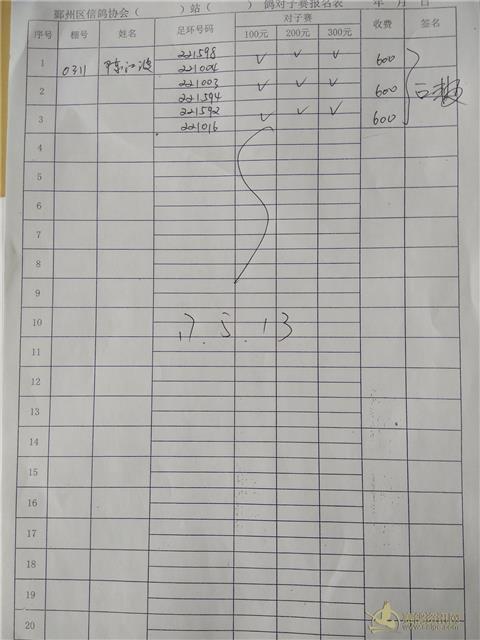 鄞州区信鸽协会( )站( )鸽对子赛报名表 年 月 日
序号 棚号 姓名 足环号码 对子赛 收费 签名
100元 200元 300元
1 0311 陈江波 221598 ✓ ✓ ✓ 600
221004
2 221003 ✓ ✓ ✓ 600
221594
3 221592 ✓ ✓ ✓ 600
221016
4
5
6
7
8
9
10 17.5.13
11
12
13
14
15
16
17
18
19
20